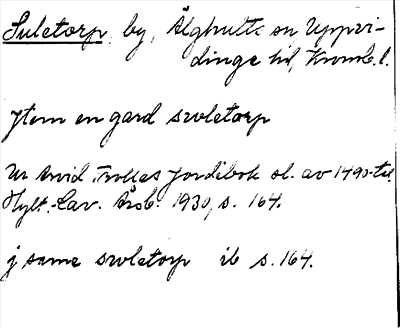 Suletorp, by, Älghults sn Uppvi-
dinge hd, Kronob. l.
Jtem en gard swletorp
Ur Arvid Trolles jordebok sl. av 1490-tal.
Hylt.-Cav. Årsb. 1930, s. 164.
j same swletorp ib s. 164.